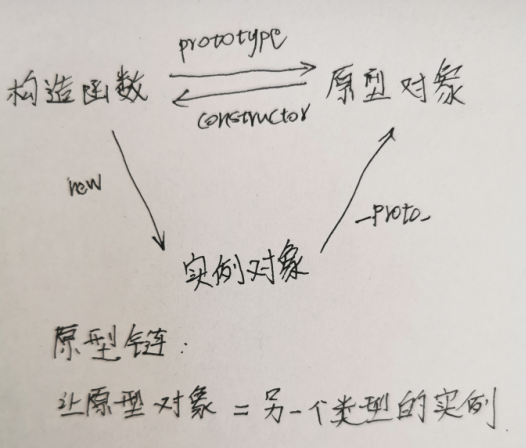 prototype
构造函数
原型对象
constructor
new
_proto_
实例对象
原型链:
让原型对象 = 另一个类型的实例